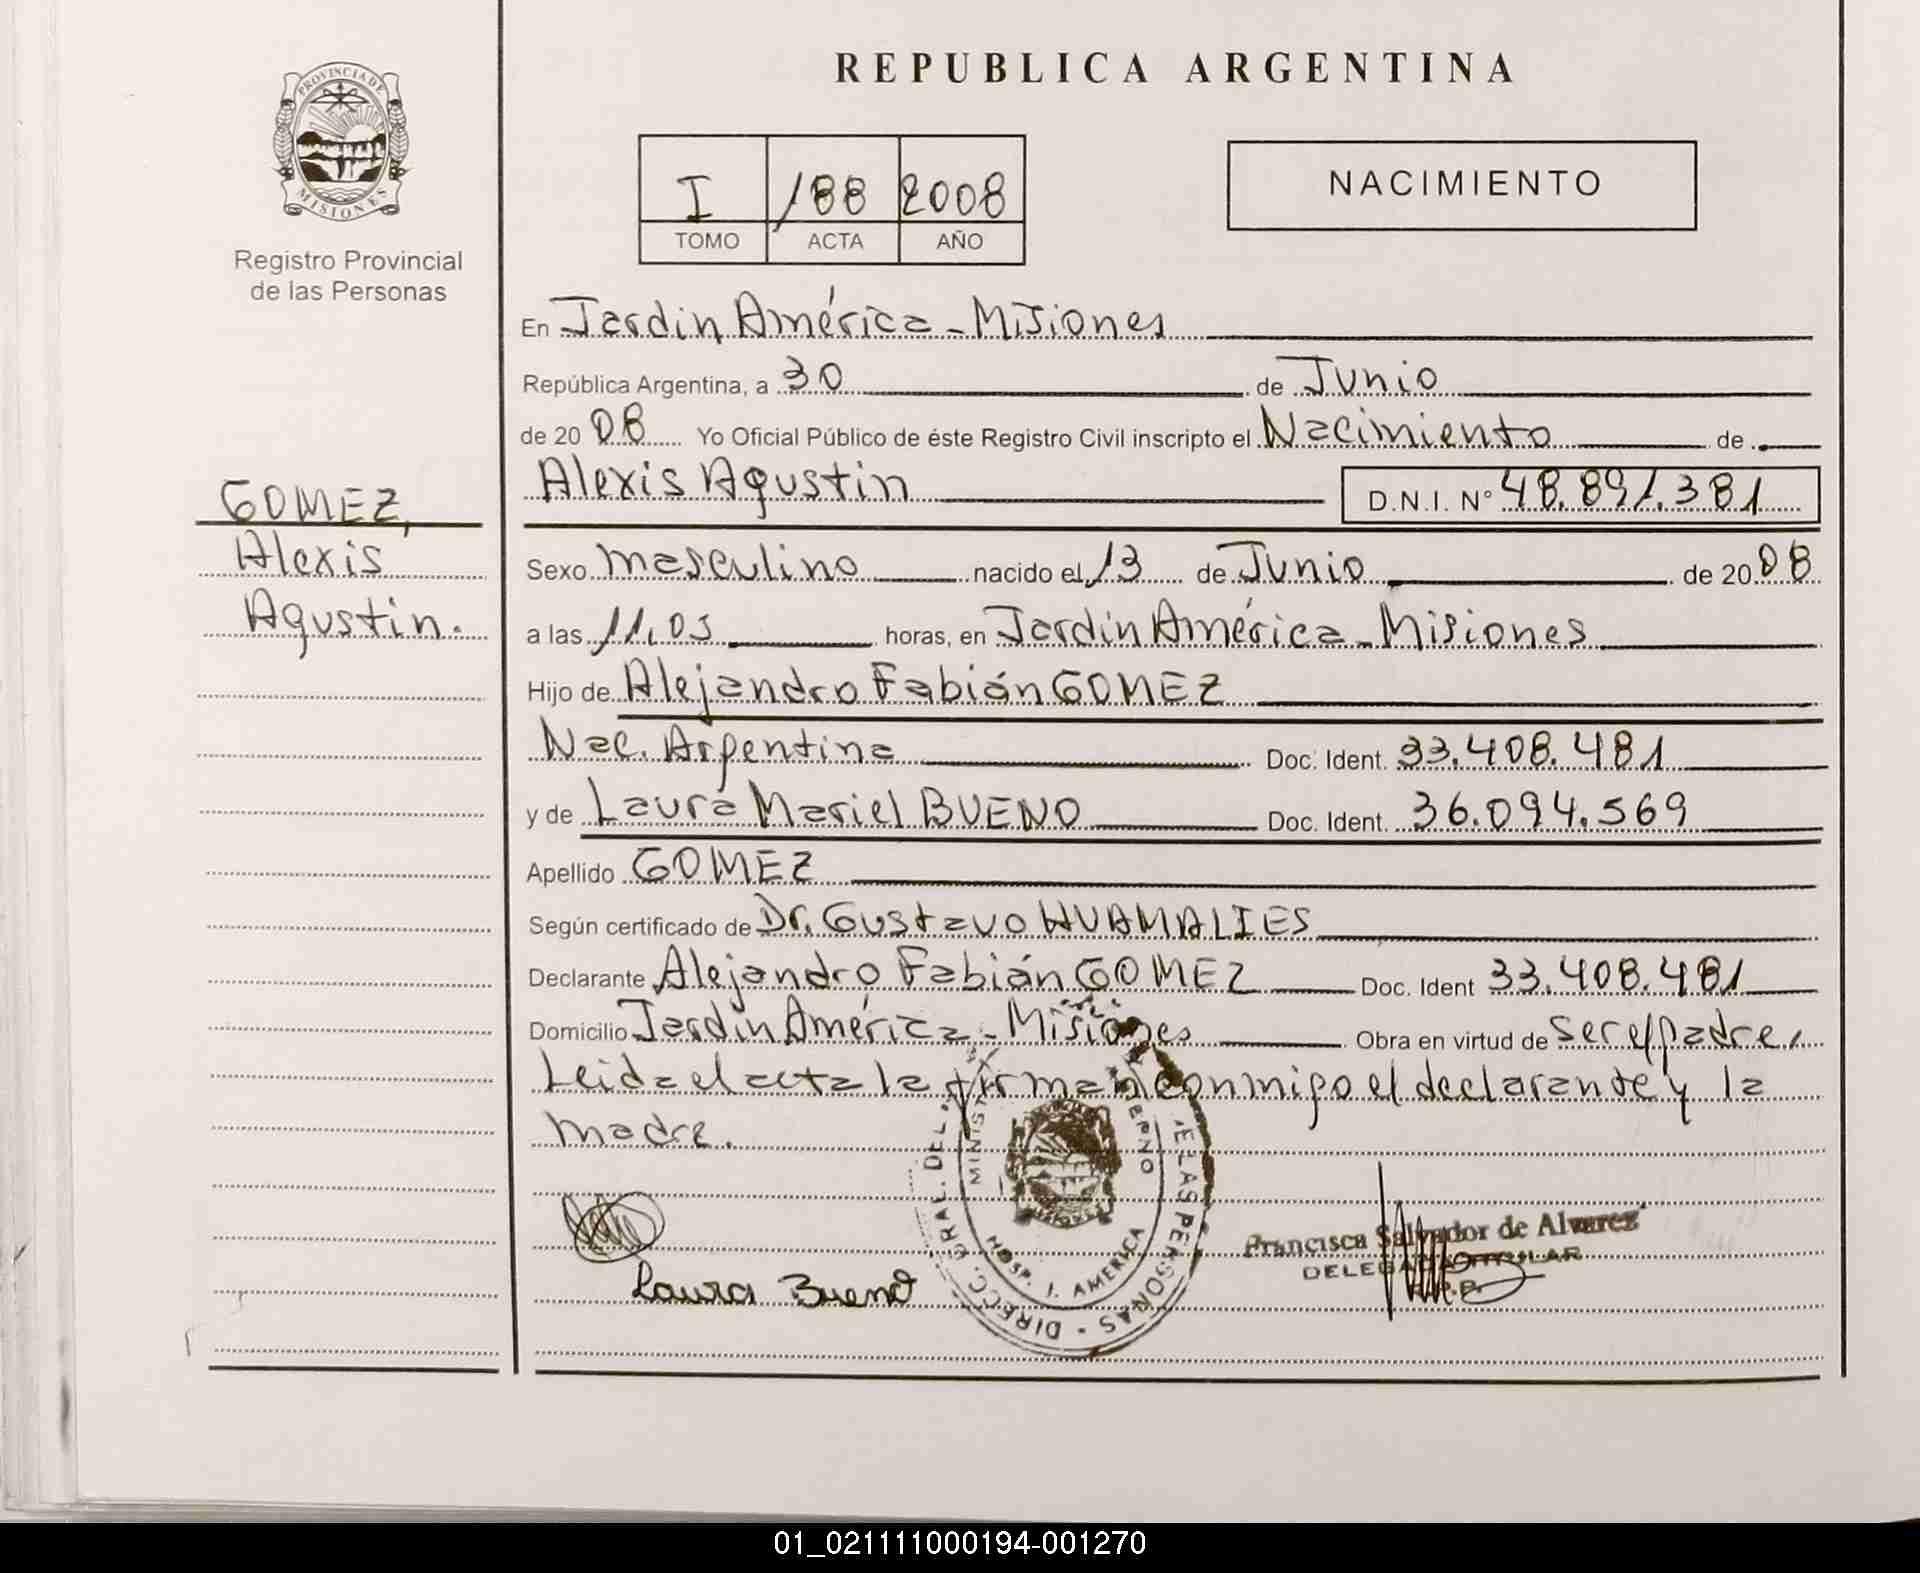 PROVINCIA DE
MISIONES
Registro Provincial
de las Personas
GOMEZ,
Alexis
Agustin.
REPUBLICA ARGENTINA
I 188 2008
TOMO ACTA AÑO
NACIMIENTO
En Jardin América - Misiones
República Argentina, a 30 de Junio
de 2008 Yo Oficial Público de éste Registro Civil inscripto el Nacimiento de
Alexis Agustin D.N.I. Nº 48.891.381
Sexo masculino nacido el 13 de Junio de 2008
a las 11,05 horas, en Jardín América - Misiones
Hijo de Alejandro Fabián GOMEZ
Nac. Argentina Doc. Ident. 33.408.481
y de Laura Mariel BUENO Doc. Ident. 36.094.569
Apellido GOMEZ
Según certificado de Dr. Gustavo HUAMALIES
Declarante Alejandro Fabián GOMEZ Doc. Ident 33.408.481
Domicilio Jardin América - Misiones Obra en virtud de ser el padre,
Leida el acta la firman conmigo el declarante y la
madre.
Laura Bueno
DIRECC. GRAL. DEL ELAS PERSONAS
MINIST ERNO
HOSP. J. AMERICA
Francisca Salvador de Alvarez
DELEGADA TITULAR
R.P.P.
01_021111000194-001270